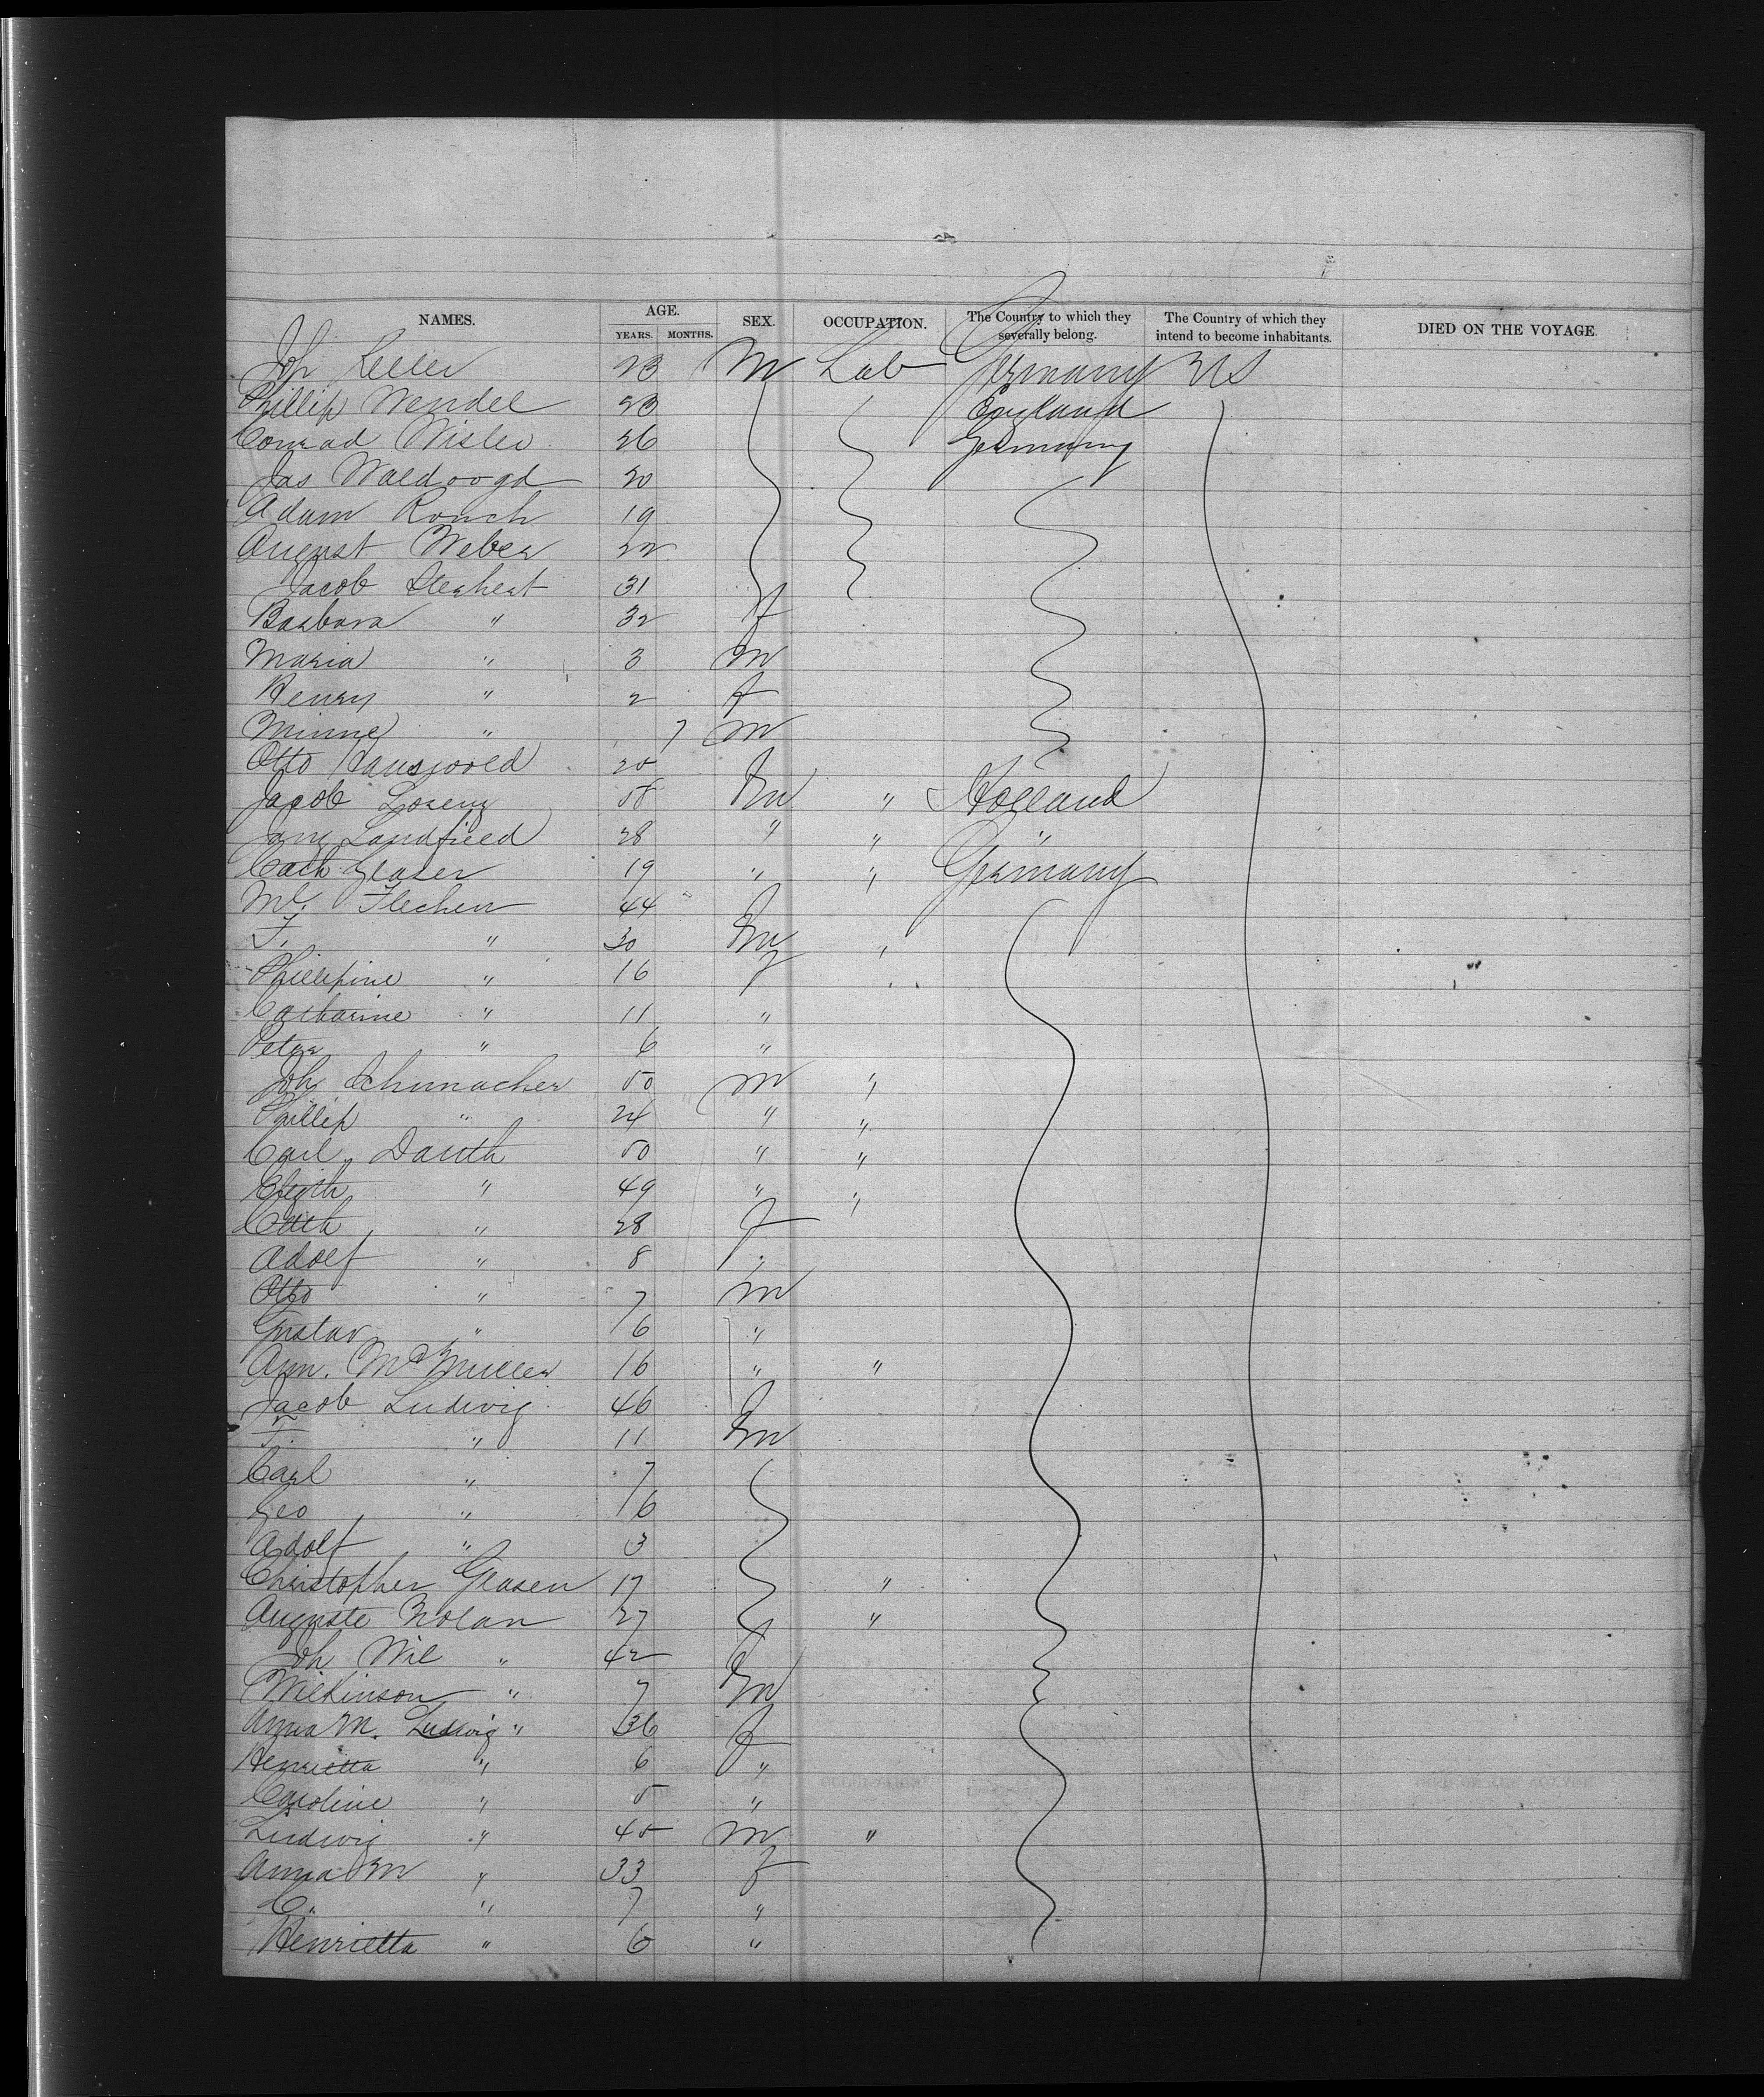 NAMES. AGE. YEARS. MONTHS. SEX. OCCUPATION. The Country to which they severally belong. The Country of which they intend to become inhabitants. DIED ON THE VOYAGE
Joh 23 M Lab Germany US
Phillip Wendel 23 England
Conrad Wisler 26 Germany
Jas Waldvogd 20
Adam Ronch 19
August Weber 22
Jacob 31
Barbara " 32 f
Maria " 3 m
Henry " 2 f
Minne " 7 m
Otto 20
Jacob Lorenz 58 m " Holland
Landfield 28 " " "
Cath Glaser 19 " " Germany
Flechen 44
F. " 30 m "
Phillepine " 16 f
Catharine " 11 "
Peter " 6 "
Joh Schumacher 50 m "
Phillip " 24 " "
Carl Dauth 50 " "
" 49 " "
Cath " 28 f
Adolf " 8 "
Otto " 7 m
Gustav " 6 "
Ann. 16 " "
Jacob Ludwig 46
F. " 11 m
Carl " 7
Geo " 6
Adolf " 3
Christopher Glasen 17 "
Auguste Nolan 27 "
Joh Wil " 42
Wilkinson " 7 m
Anna M. Ludwig " 36 f
Henrietta " 6 "
Caroline " 5 "
Ludwig " 45 m "
Anna M " 33 f
C. " 7 "
Henrietta " 6 "